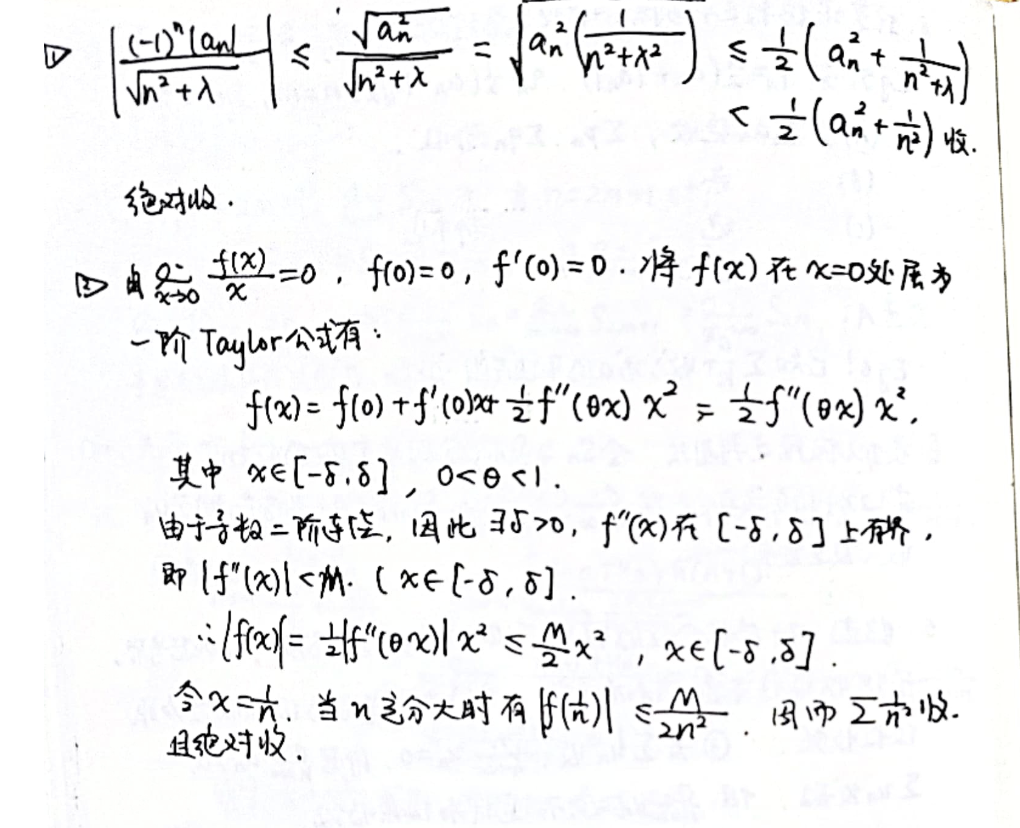 ① |(-1)ⁿ|aₙ| / √(n²+λ)| ≤ √(aₙ²) / √(n²+λ) = √(aₙ²(1/(n²+λ²))) ≤ 1/2(aₙ² + 1/(n²+λ))
< 1/2(aₙ² + 1/n²) 收.
绝对收.
② 由 lim x→0 f(x)/x = 0, f(0)=0, f'(0)=0. 将 f(x) 在 x=0处展为
一阶 Taylor公式有:
f(x) = f(0) + f'(0)x + 1/2 f''(θx) x² = 1/2 f''(θx) x²,
其中 x∈[-δ,δ], 0<θ<1.
由于导数二阶连续, 因此 ∃δ>0, f''(x)在 [-δ,δ]上有界,
即 |f''(x)|<M. ( x∈[-δ,δ].
∴|f(x)| = 1/2|f''(θx)| x² ≤ M/2 x², x∈[-δ,δ].
令 x=1/n. 当 n 充分大时有 |f(1/n)| ≤ M/2n². 因而 Σ1/n²收.
且绝对收.